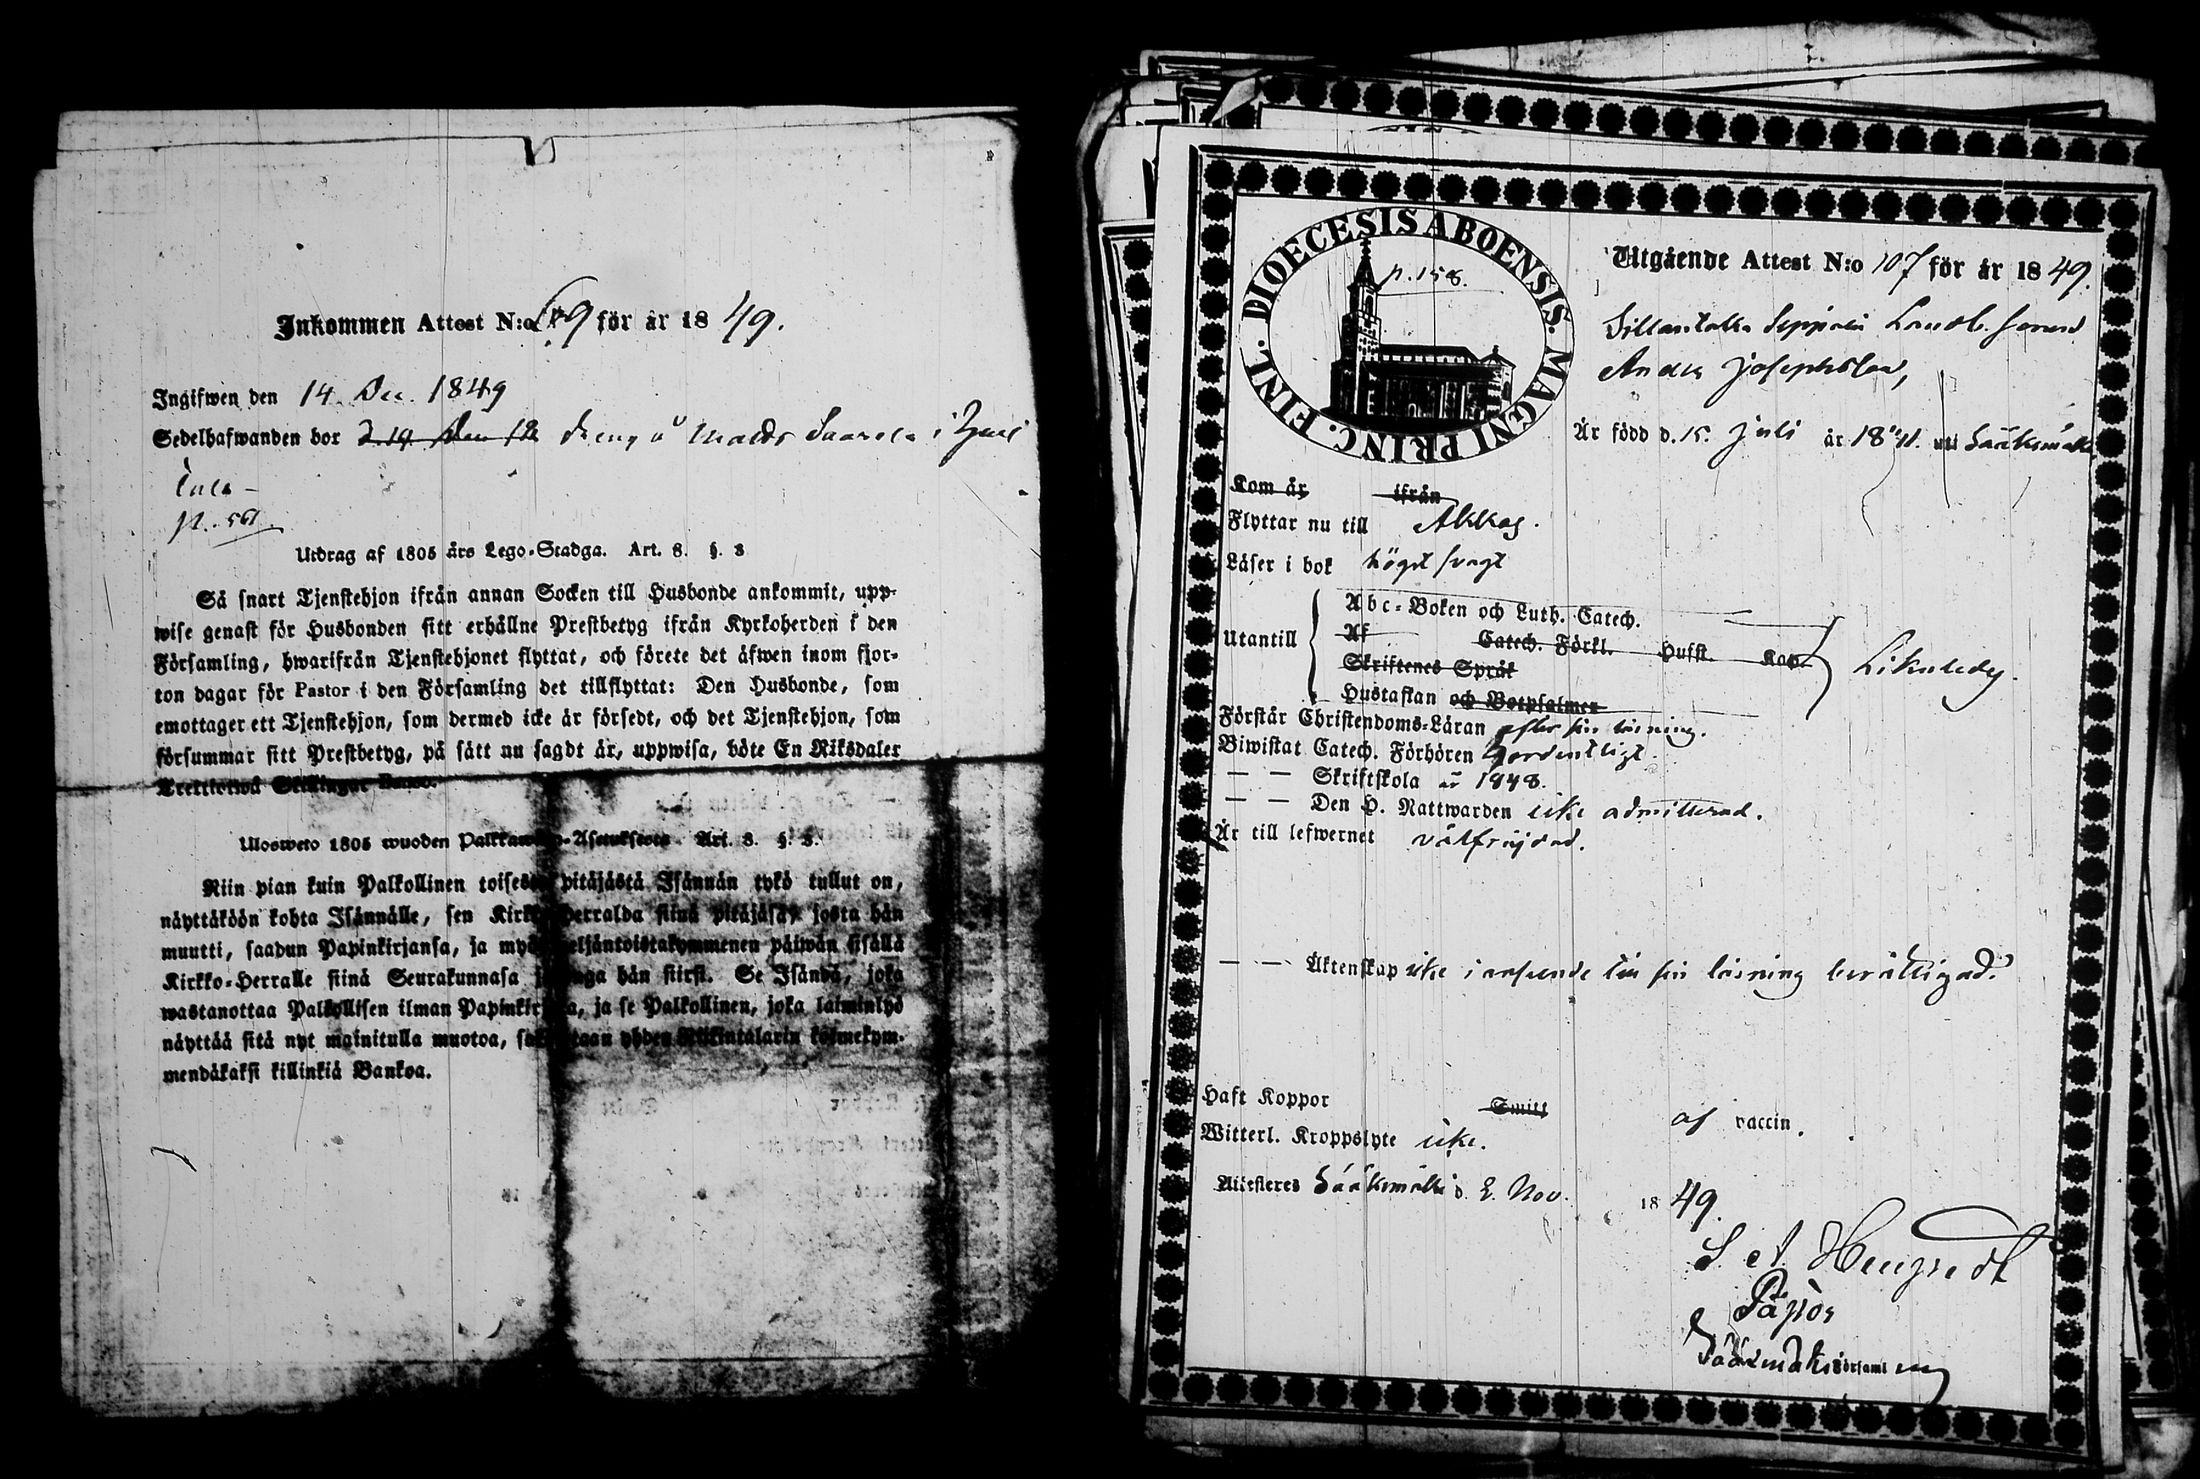 Inkommen Attest N:o 9 för år 1849.
Ingifwen den 14. Dec. 1849
Sedelhafwanden bor dreng å Saarela i
p. 561.
Utdrag af 1805 års Lego-Stadga. Art. 8. §. 8
Så snart Tjenstehjon ifrån annan Socken till Husbonde ankommit, upp-
wise genast för Husbonden sitt erhållne Prestbetyg ifrån Kyrkoherden i den
Församling, hwarifrån Tjenstehjonet flyttat, och förete det äfwen inom fjor-
ton dagar för Pastor i den Församling det tillflyttat: Den Husbonde, som
emottager ett Tjenstehjon, som dermed icke är försedt, och det Tjenstehjon, som
försummar sitt Prestbetyg, på sätt nu sagdt är, uppwisa, böte En Riksdaler
Trettiotwå Skillingar Banco.
Ulosweto 1805 wuoden Art. 8. §. 8.
Niin pian kuin Palkollinen toisesta pitäjästä Isännän tykö tullut on,
näyttäköön kohta Isännälle, sen Kirkko-Herralda siinä pitäjäsä, josta hän
muutti, saadun Papinkirjansa, ja myös neljäntoistakymmenen päiwän sisällä
Kirkko-Herralle siinä Seurakunnasa johonga hän siirsi. Se Isändä, joka
wastanottaa Palkollisen ilman Papinkirjata, ja se Palkollinen, joka laiminlyö
näyttää sitä nyt mainitulla muotoa, sakoitetaan yhden Riikintalarin kolmekym-
mendäkaksi killinkiä Bankoa.
DIOECESIS ABOENSIS. MAGNI PRINC. FINL.
p. 158.
Utgående Attest N:o 107 för år 1849.
Seppälä Landb. sonen
Anders Josephsson,
Är född d. 15. Juli år 18 uti Sääksmäki
Kom år ifrån
Flyttar nu till Akkas.
Läser i bok högst svagt
Utantill
Abc-Boken och Luth. Catech.
Af Catech. Förkl. Husst. Kap.
Skriftenes Språk
Hustaflan och Botpsalmer
Likaledes.
Förstår Christendoms-Läran efter sin läsning.
Biwistat Catech. Förhören ordentligt.
— — Skriftskola år 1848.
— — Den H. Nattwarden icke admitterad.
Är till lefwernet välfrejdad.
— — Äktenskap icke i anseende till sin läsning berättigad.
Haft Koppor Smitt af vaccin.
Witterl. Kroppslyte icke.
Attesteres Sääksmäki d. 2. Nov. 1849.
Sääksmäki Församl